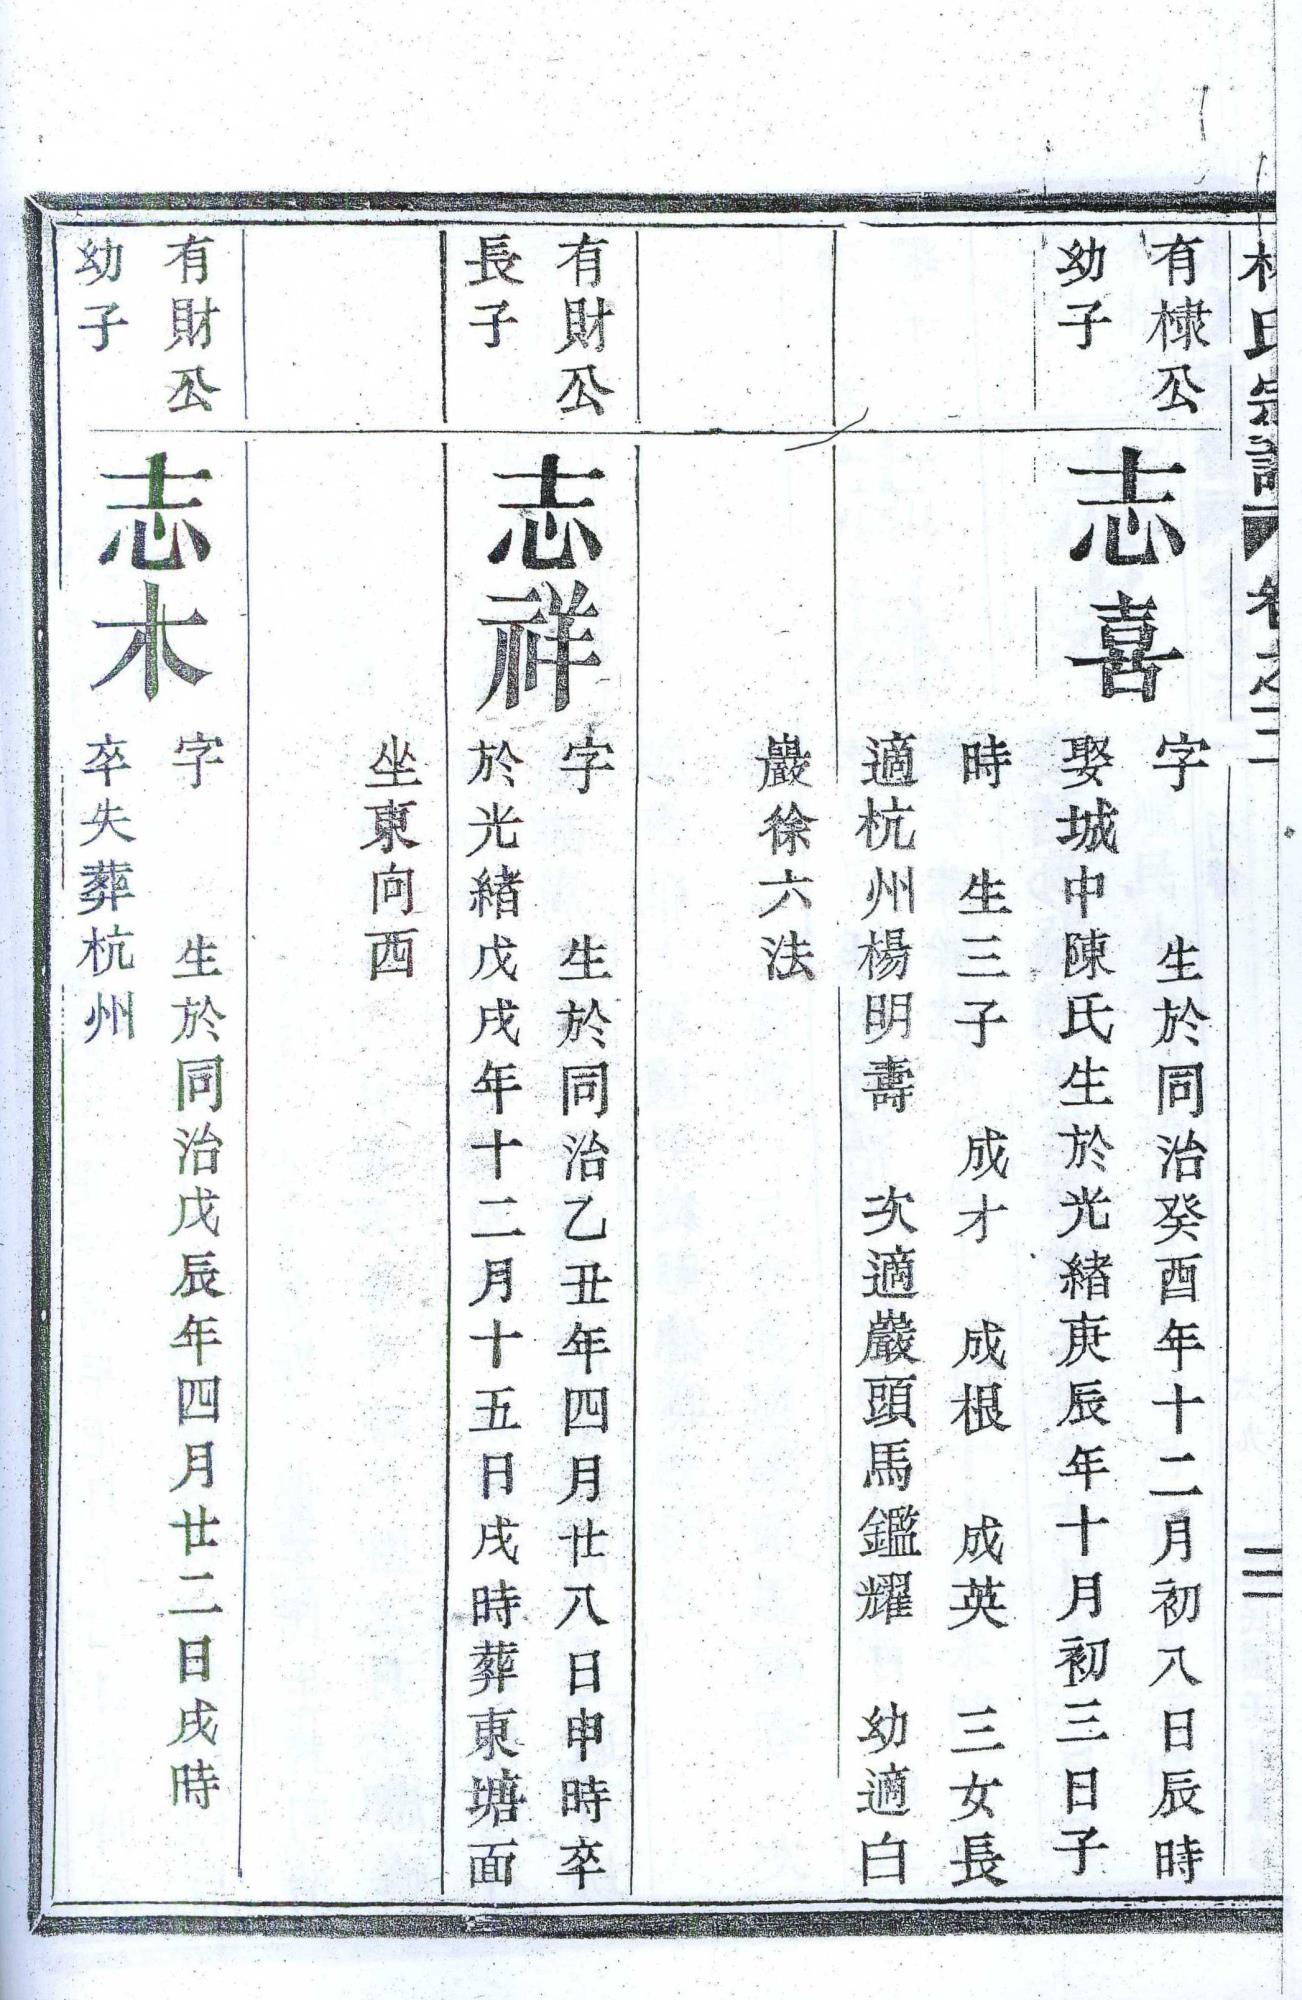 氏宗譜 卷之二
三
有棣公
幼子
志喜
字 生於同治癸酉年十二月初八日辰時
娶城中陳氏生於光緒庚辰年十月初三日子
時 生三子 成才 成根 成英 三女長
適杭州楊明壽 次適巖頭馬鑑耀 幼適白
巖徐六法
有財公
長子
志祥
字 生於同治乙丑年四月廿八日申時卒
於光緒戊戌年十二月十五日戌時葬東塘面
坐東向西
有財公
幼子
志木
字 生於同治戊辰年四月廿二日戌時
卒失葬杭州